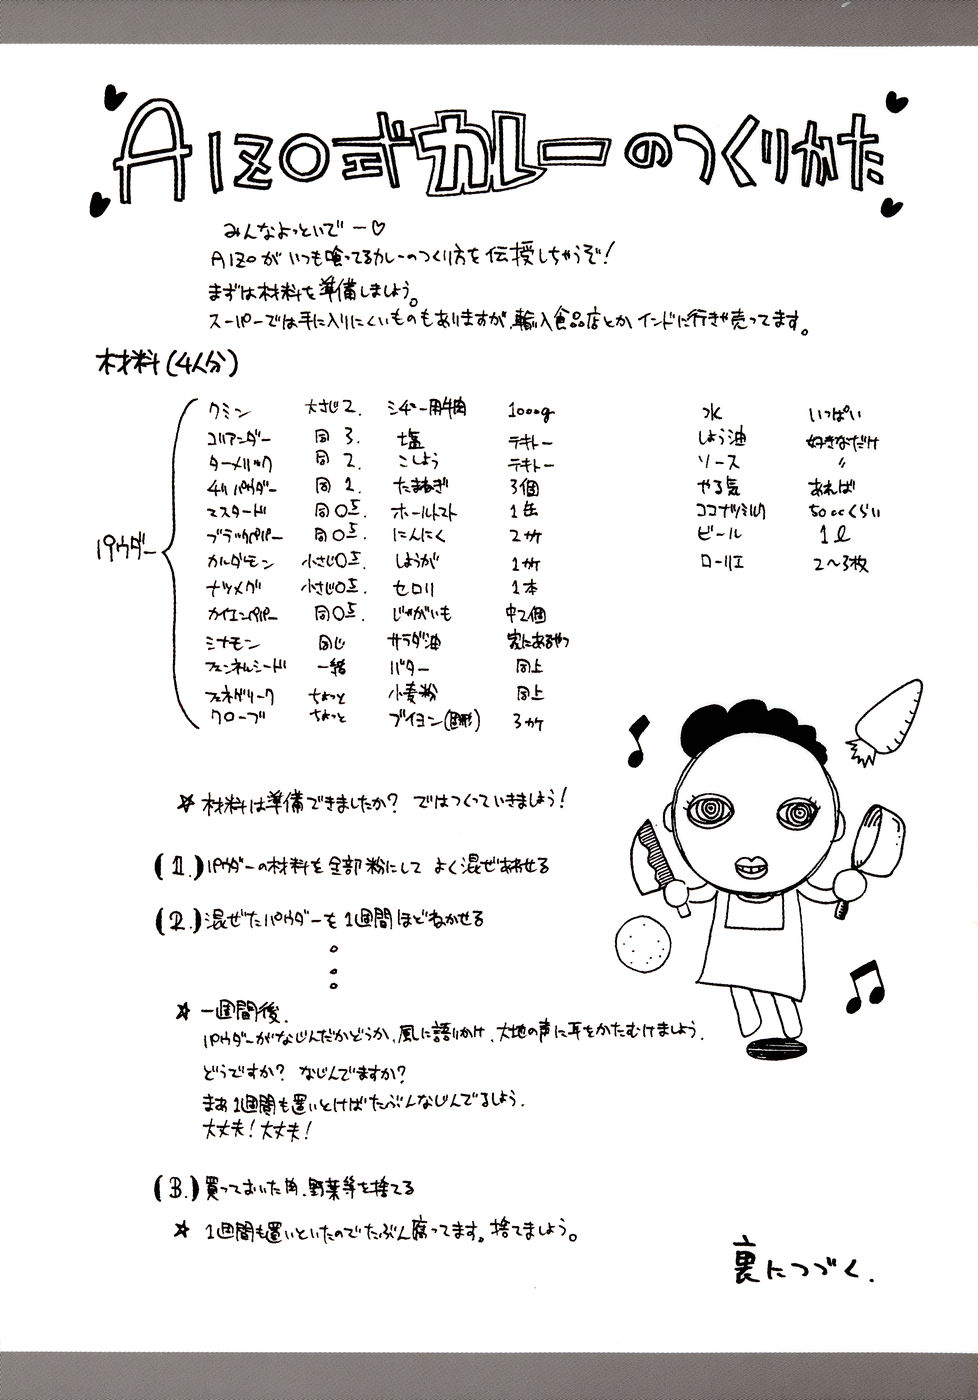 AIZO式カレーのつくりかた
みんなよっといでー♡
AIZOがいつも喰ってるカレーのつくり方を伝授しちゃうぞ!
まずは材料を準備しましょう。
スーパーでは手に入りにくいものもありますが、輸入食品店とかインドに行きゃ売ってます。
材料(4人分)
パウダー
クミン 大さじ2.
コリアンダー 同 3.
ターメリック 同 2.
チリパウダー 同 1.
マスタード 同 0.5.
ブラックペパー 同 0.5.
カルダモン 小さじ0.5.
ナツメグ 小さじ0.5.
カイエンペパー 同 0.5.
シナモン 同じ
フェンネルシード 一緒
フェネグリーク ちょっと
クローブ ちょっと
シチュー用牛肉 1000g
塩 テキトー
こしょう テキトー
たまねぎ 3個
ホールトマト 1缶
にんにく 2ケ
しょうが 1ケ
セロリ 1本
じゃがいも 中2個
サラダ油 家にあるやつ
バター 同上
小麦粉 同上
ブイヨン(固形) 3ケ
水 いっぱい
しょう油 好きなだけ
ソース 〃
やる気 あれば
ココナツミルク 50ccくらい
ビール 1ℓ
ローリエ 2〜3枚
☆ 材料は準備できましたか? ではつくっていきましょう!
(1.)パウダーの材料を全部粉にして よく混ぜあわせる
(2.)混ぜたパウダーを1週間ほどねかせる
☆ 一週間後.
パウダーがなじんだかどうか、風に語りかけ、大地の声に耳をかたむけましょう.
どうですか? なじんでますか?
まあ1週間も置いとけばたぶんなじんでるしょう.
大丈夫!大丈夫!
(3.)買っておいた肉、野菜等を捨てる
☆ 1週間も置いといたのでたぶん腐ってます。捨てましょう。
裏につづく.